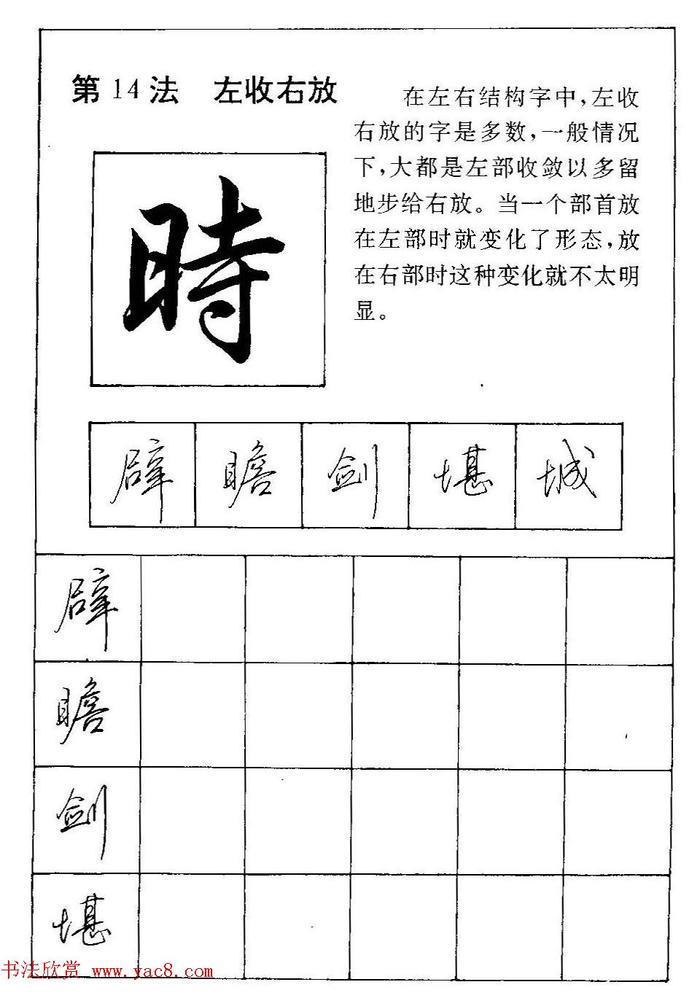 第14法 左收右放
在左右结构字中,左收
右放的字是多数,一般情况
下,大都是左部收敛以多留
地步给右放。当一个部首放
在左部时就变化了形态,放
在右部时这种变化就不太明
显。
時
辟 瞻 剑 堪 城
辟
瞻
剑
堪
书法欣赏 www.yac8.com